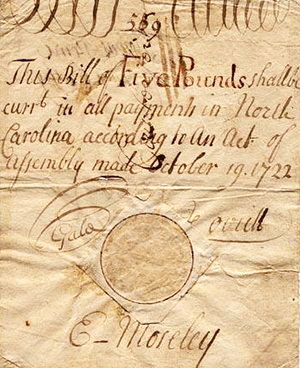 569
This Bill of Five Pounds shall be
currt. in all payments in North
Carolina according to An Act of
Assembly made October 19. 1722
Gale Lovick
E- Moseley